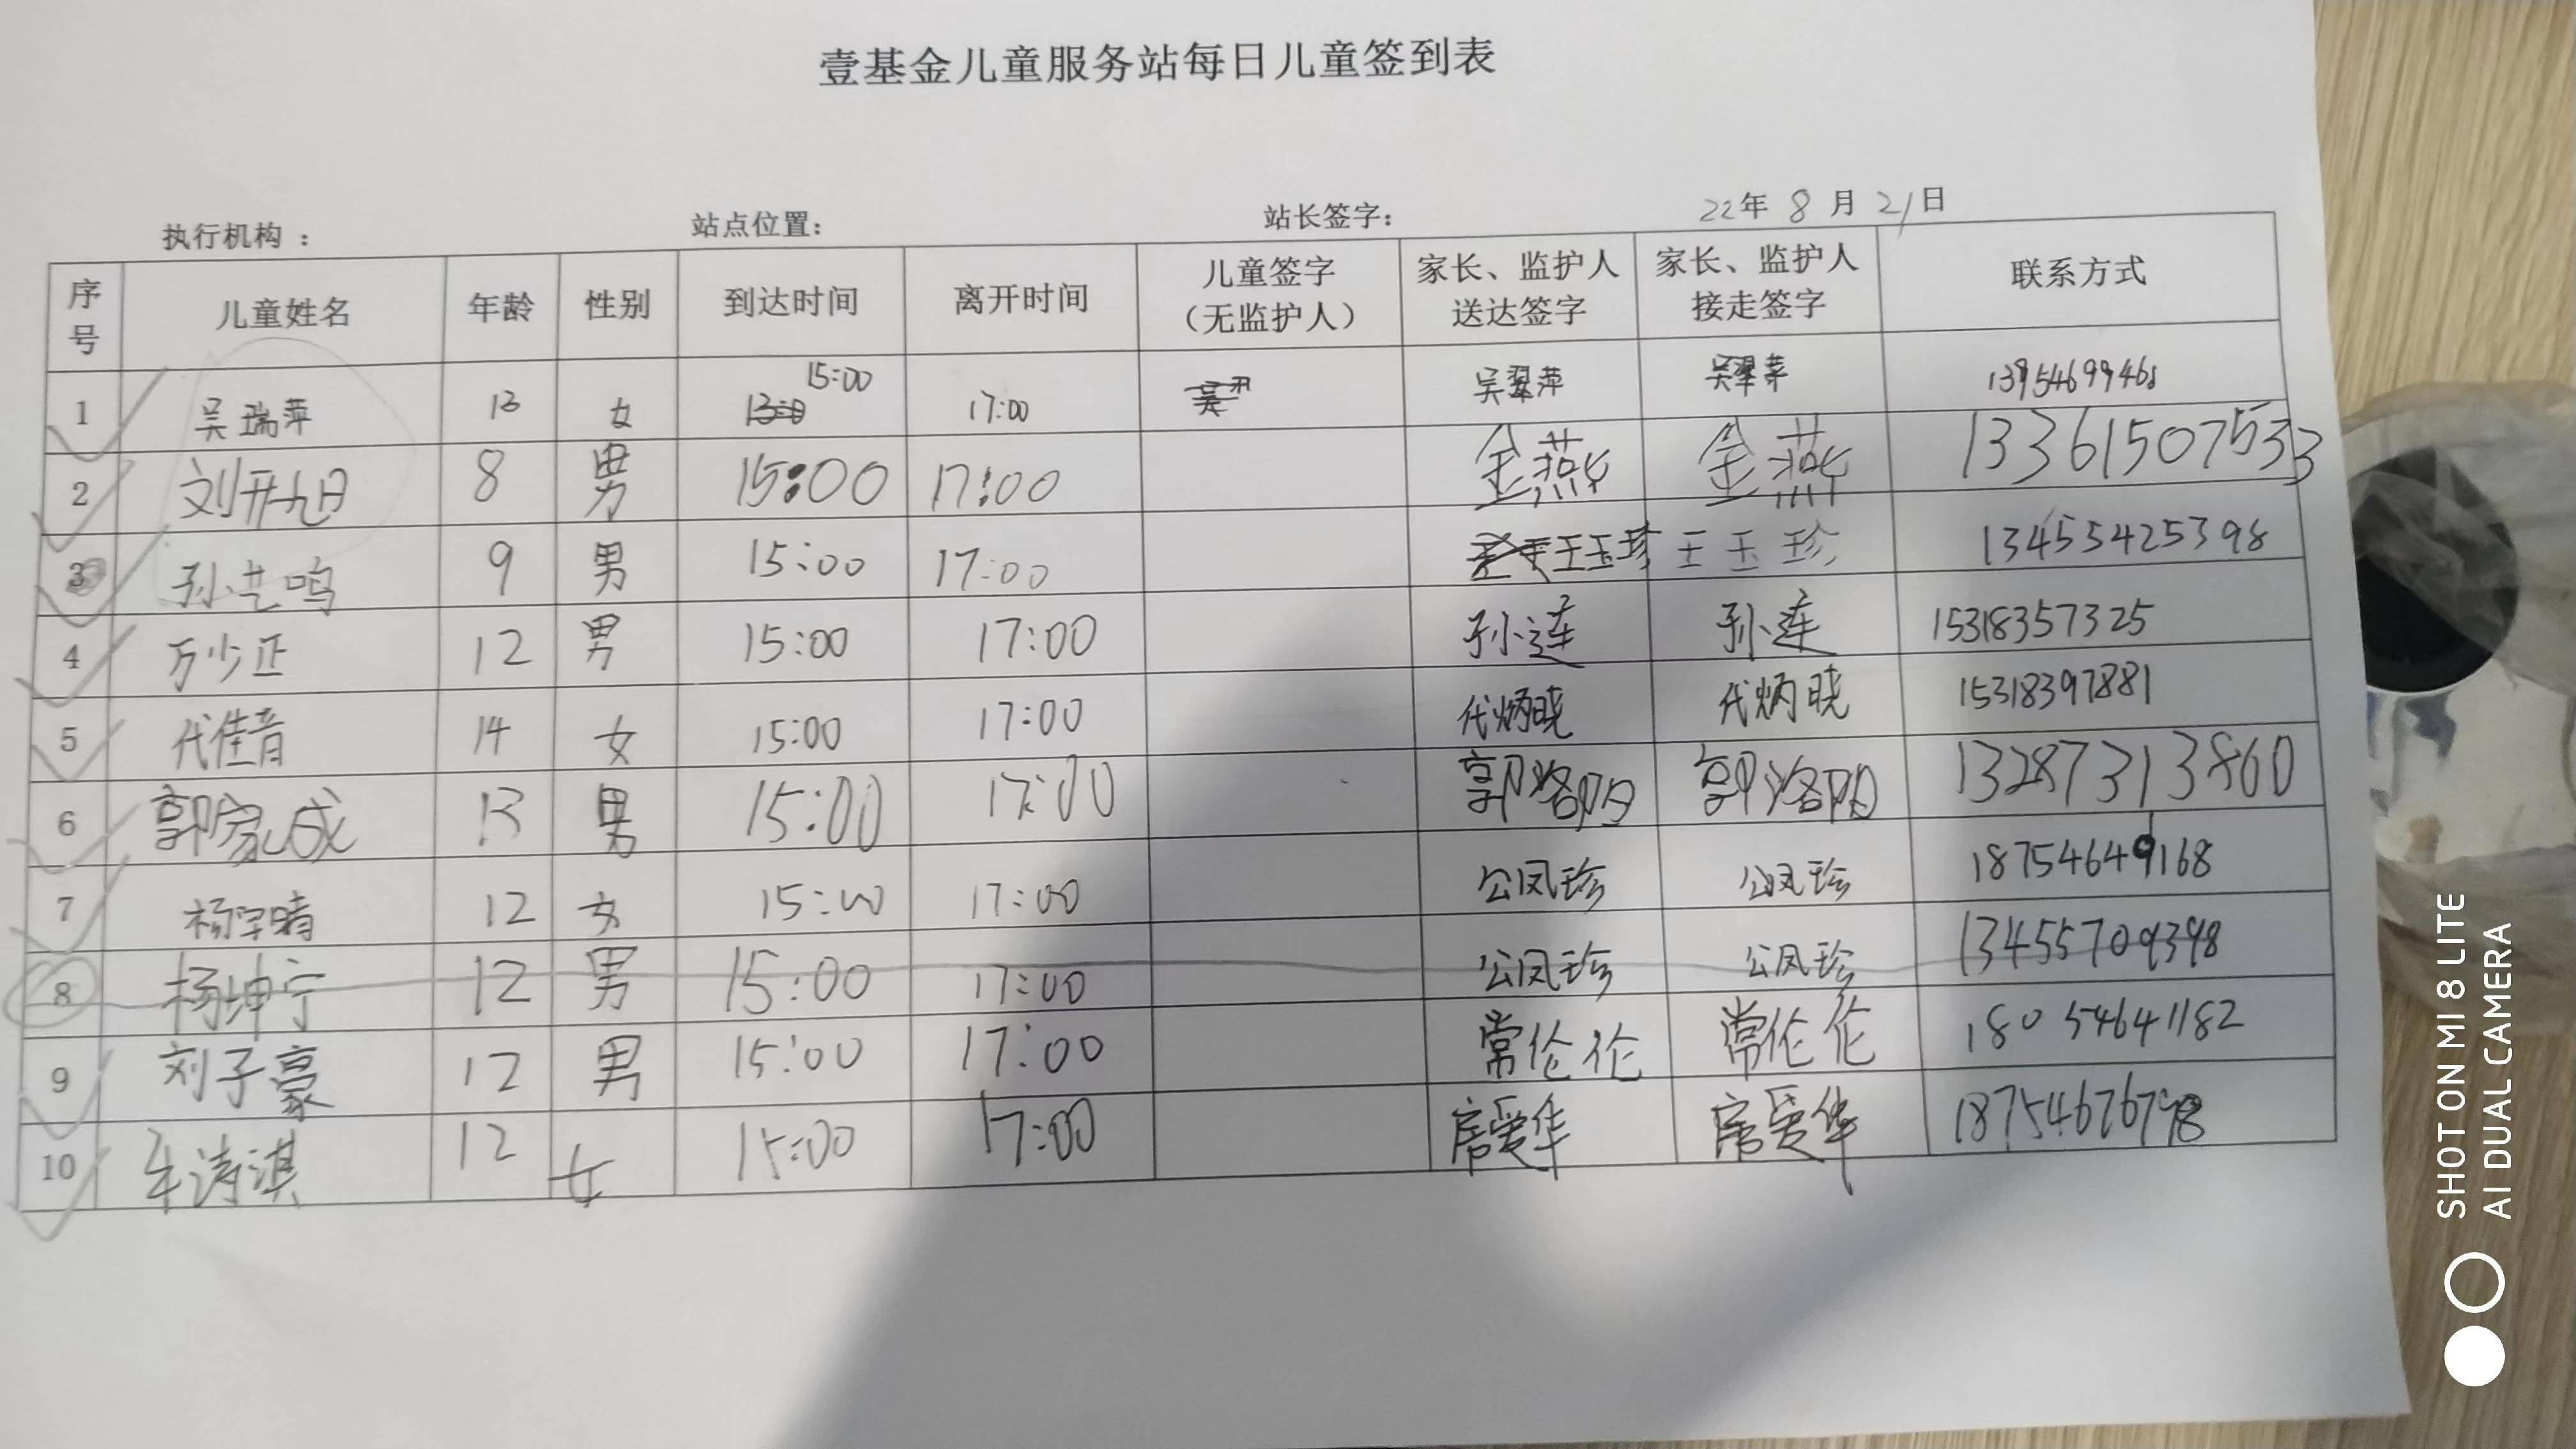 壹基金儿童服务站每日儿童签到表
执行机构： 站点位置： 站长签字： 22年 8 月 21日
序号 儿童姓名 年龄 性别 到达时间 离开时间 儿童签字（无监护人） 家长、监护人送达签字 家长、监护人接走签字 联系方式
1 吴瑞萍 13 女 15:00 17:00 吴翠萍 吴翠萍
2 刘开旭 8 男 15:00 17:00 金燕 金燕 13361507533
3 孙艺鸣 9 男 15:00 17:00 王玉珍 王玉珍 13455425398
4 万少正 12 男 15:00 17:00 孙莲 孙莲 15318357325
5 代佳音 14 女 15:00 17:00 代炳晓 代炳晓 15318397881
6 郭家成 13 男 15:00 17:00 郭洛阳 郭洛阳 13287313860
7 杨宇晴 12 女 15:00 17:00 公凤珍 公凤珍 18754649168
8 杨坤宁 12 男 15:00 17:00 公凤珍 公凤珍 13455709398
9 刘子豪 12 男 15:00 17:00 常伦伦 常伦伦 18054641182
10 车涛淇 12 女 15:00 17:00 席爱华 席爱华
SHOT ON MI 8 LITE
AI DUAL CAMERA